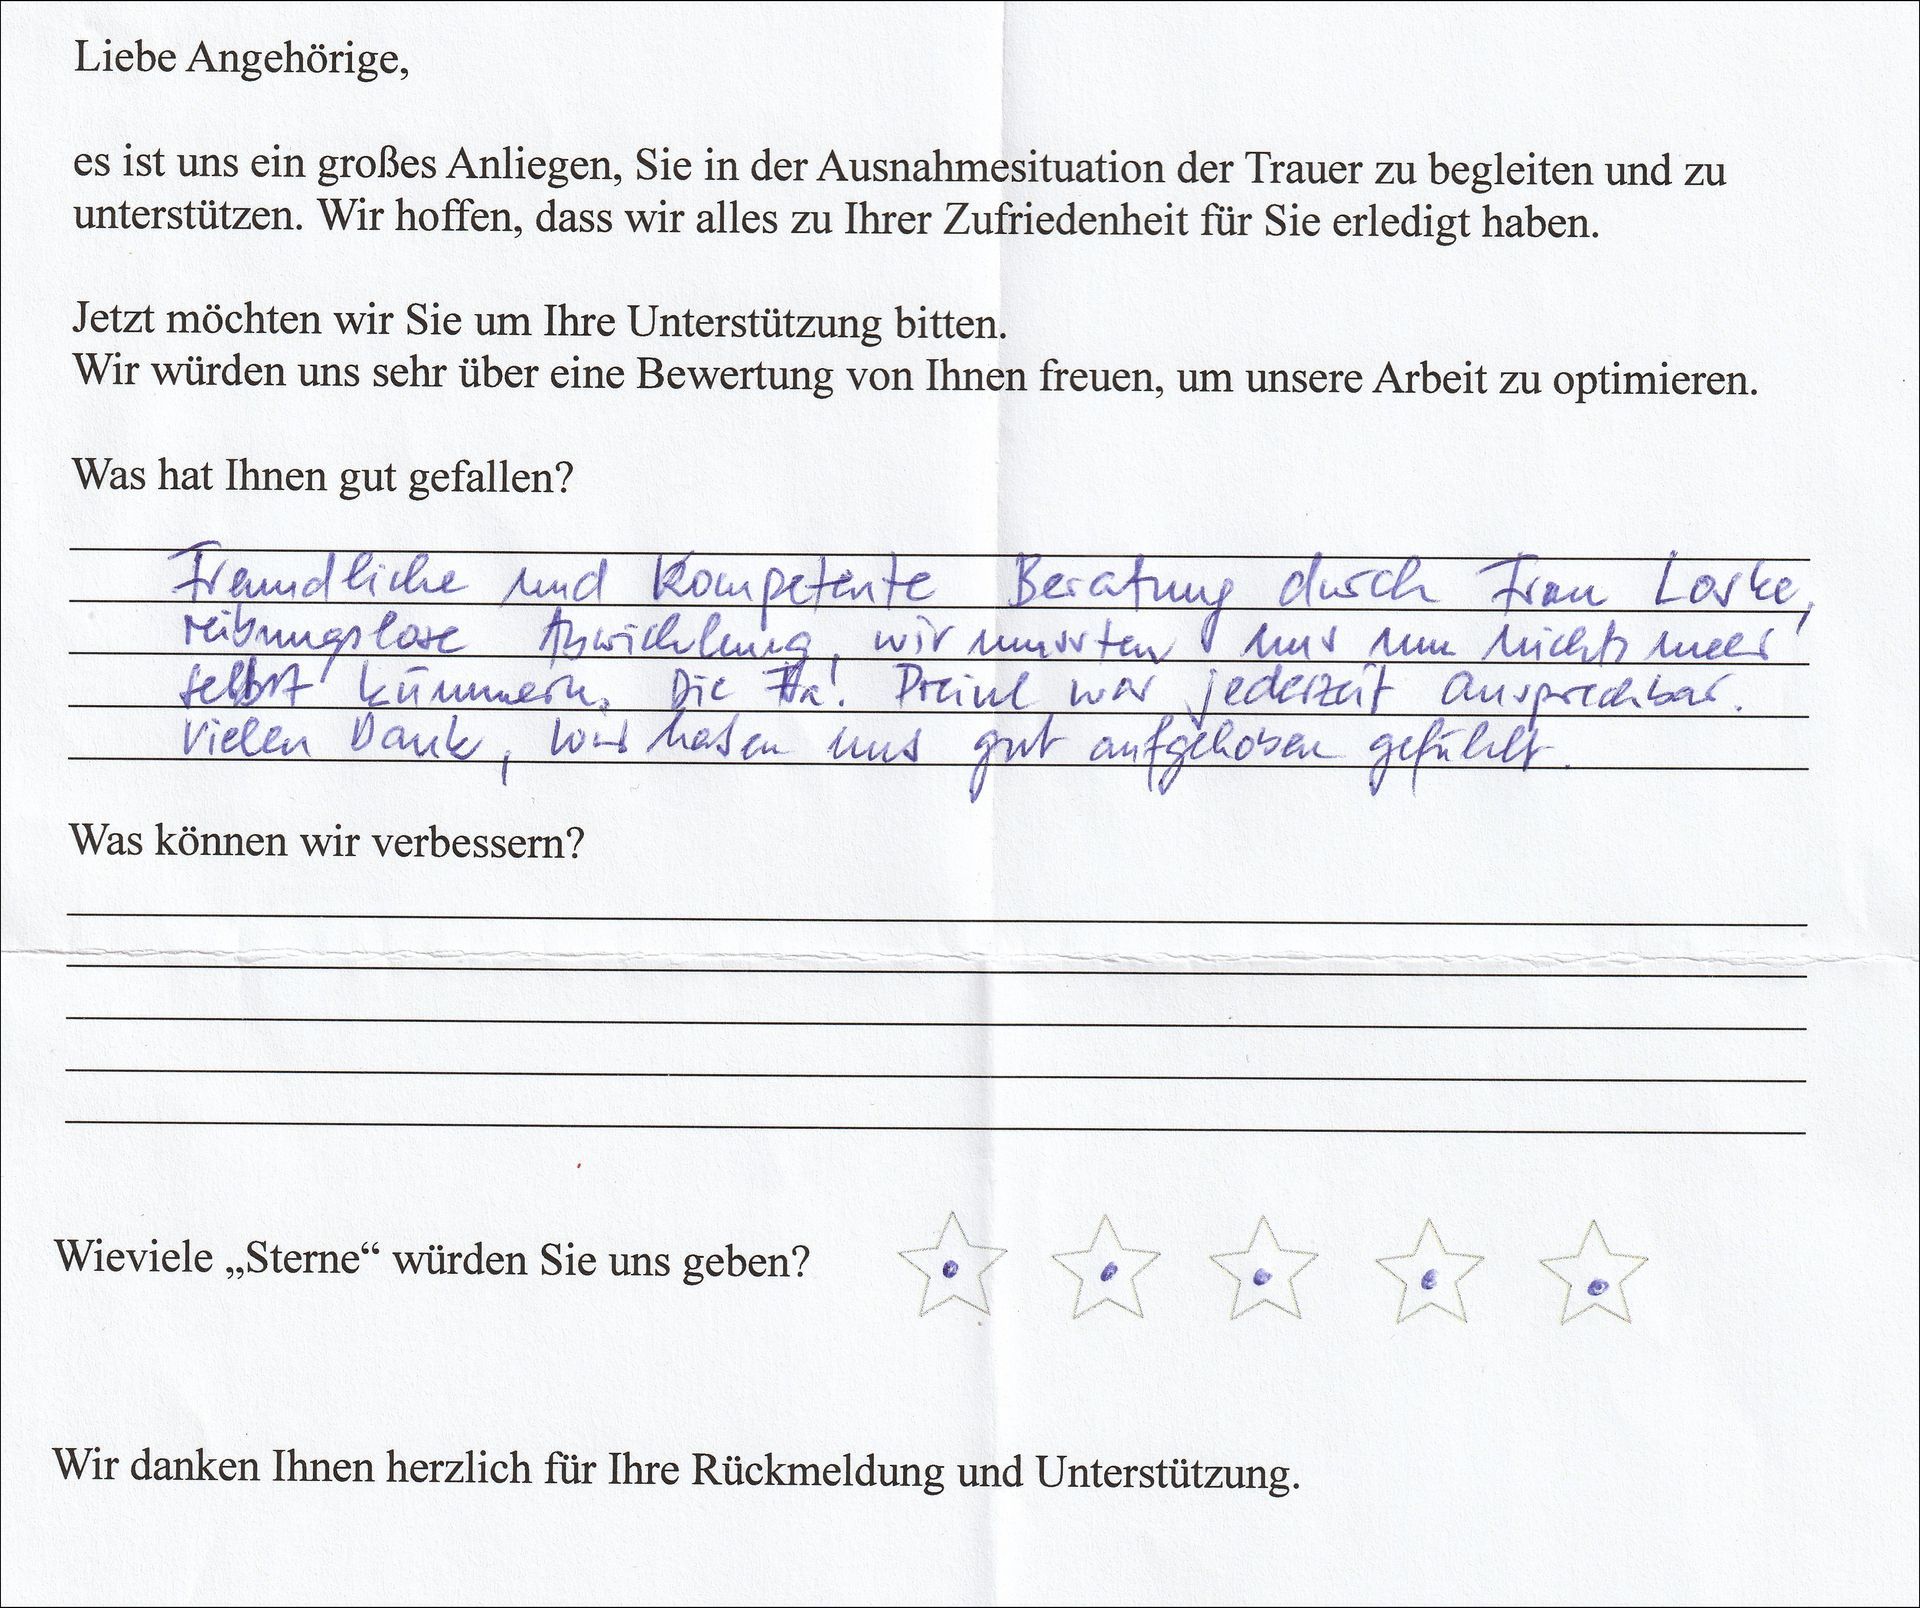 Liebe Angehörige,
es ist uns ein großes Anliegen, Sie in der Ausnahmesituation der Trauer zu begleiten und zu
unterstützen. Wir hoffen, dass wir alles zu Ihrer Zufriedenheit für Sie erledigt haben.
Jetzt möchten wir Sie um Ihre Unterstützung bitten.
Wir würden uns sehr über eine Bewertung von Ihnen freuen, um unsere Arbeit zu optimieren.
Was hat Ihnen gut gefallen?
Freundliche und Kompetente Beratung durch Frau Loske,
reibungslose Abwicklung, wir mussten uns um nichts mehr
selbst kümmern. Die Fa. war jederzeit ansprechbar.
Vielen Dank, wir haben uns gut aufgehoben gefühlt.
Was können wir verbessern?
Wieviele „Sterne“ würden Sie uns geben?
Wir danken Ihnen herzlich für Ihre Rückmeldung und Unterstützung.